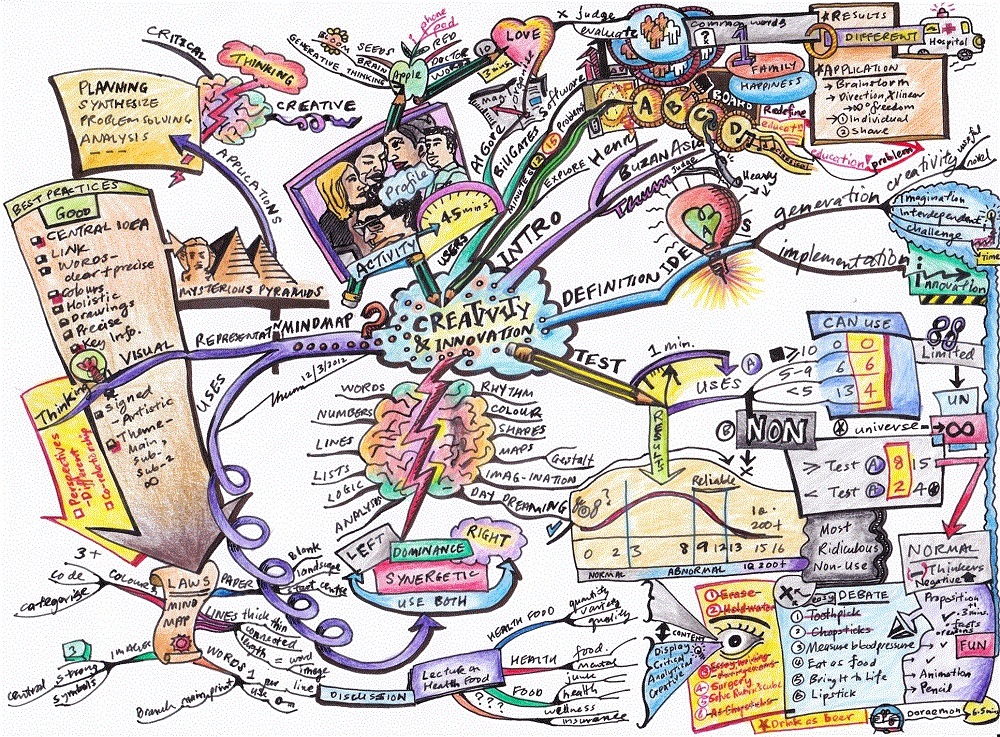 CREATIVITY
& INNOVATION
CRITICAL
THINKING
CREATIVE
PLANNING
SYNTHESIZE
PROBLEM SOLVING
ANALYSIS
APPLICATIONS
BEST PRACTICES
GOOD
CENTRAL IDEA
LINK
WORDS-
clear + precise
Colours
Holistic
Drawings
Precise
Key info.
VISUAL
Signed
-Artistic
Theme-
Main
Sub-1
Sub-2
∞
Thinking
Perspectives
-Different
Co-relationship
MYSTERIOUS PYRAMIDS
REPRESENTATION
MINDMAP ?
USES
Thum 12/3/2012
SEEDS
BRAIN
GENERATIVE THINKING
Apple
phone
food
RED
DOCTOR
WORDS
10
3 mins.
LOVE
Profile
ACTIVITY
45 mins
USERS
Al Gore
Map
organise
Software
BILL GATES
MINUTES
15
Problem
EXPLORE
Henry
INTRO
BUZAN ASIA
Thum
Judge
x judge
evaluate
common words
?
1
FAMILY
HAPPINESS
RESULTS
DIFFERENT
Hospital
APPLICATION
→ Brainstorm
→ Direction X linear
→ 100% freedom
→ ① Individual
② share
A
B
C
D
BOARD
Redefine
education
Education
problem
Heavy
DEFINITION
IDEAS
generation
creativity
useful
novel
Imagination
Interdependent
challenge
Time
implementation
innovation
TEST
1 min.
USES
A
≥10 0 0
5-9 6 6
<5 13 4
CAN USE
Limited
UN
∞
B
NON
universe
≥ Test A 8 15
< Test A 2 4
RESULTS
Reliable
IQ
200+
0 2 3 8 9 12 13 15 16
NORMAL ABNORMAL IQ 200+
Most
Ridiculous
Non-Use
NORMAL
Thinkers
Negative
WORDS
NUMBERS
LINES
LISTS
LOGIC
ANALYSIS
RHYTHM
COLOUR
SHAPES
MAPS
Gestalt
IMAGINATION
DAY DREAMING
LEFT
DOMINANCE
RIGHT
SYNERGETIC
USE BOTH
LAWS
MIND
MAP
3+
code
categorise
COLOURS
PAPER
Blank
landscape
start centre
LINES
thick thin
connected
length = word
image
WORDS
1 per line
print
Branch main
IMAGES
3
strong
central
symbols
DISCUSSION
Lecture on
Health Food
HEALTH FOOD
quantity
variety
quality
HEALTH
food
mental
FOOD
junk
health
???
wellness
insurance
CONTENT
Display
Critical
Analytical
Creative
① Erase
② Hold water
③ Essay writing
④ Surgery
⑤ Solve Rubix's cube
⑥ As Chopsticks
Drink as beer
easy
DEBATE
① Toothpick
② Chopsticks
③ Measure blood pressure
④ Eat as food
⑤ Bring It to Life
⑥ Lipstick
Proposition
3 mins.
+ facts
reasons
FUN
→ Animation
→ Pencil
Doraemon
6.5 min